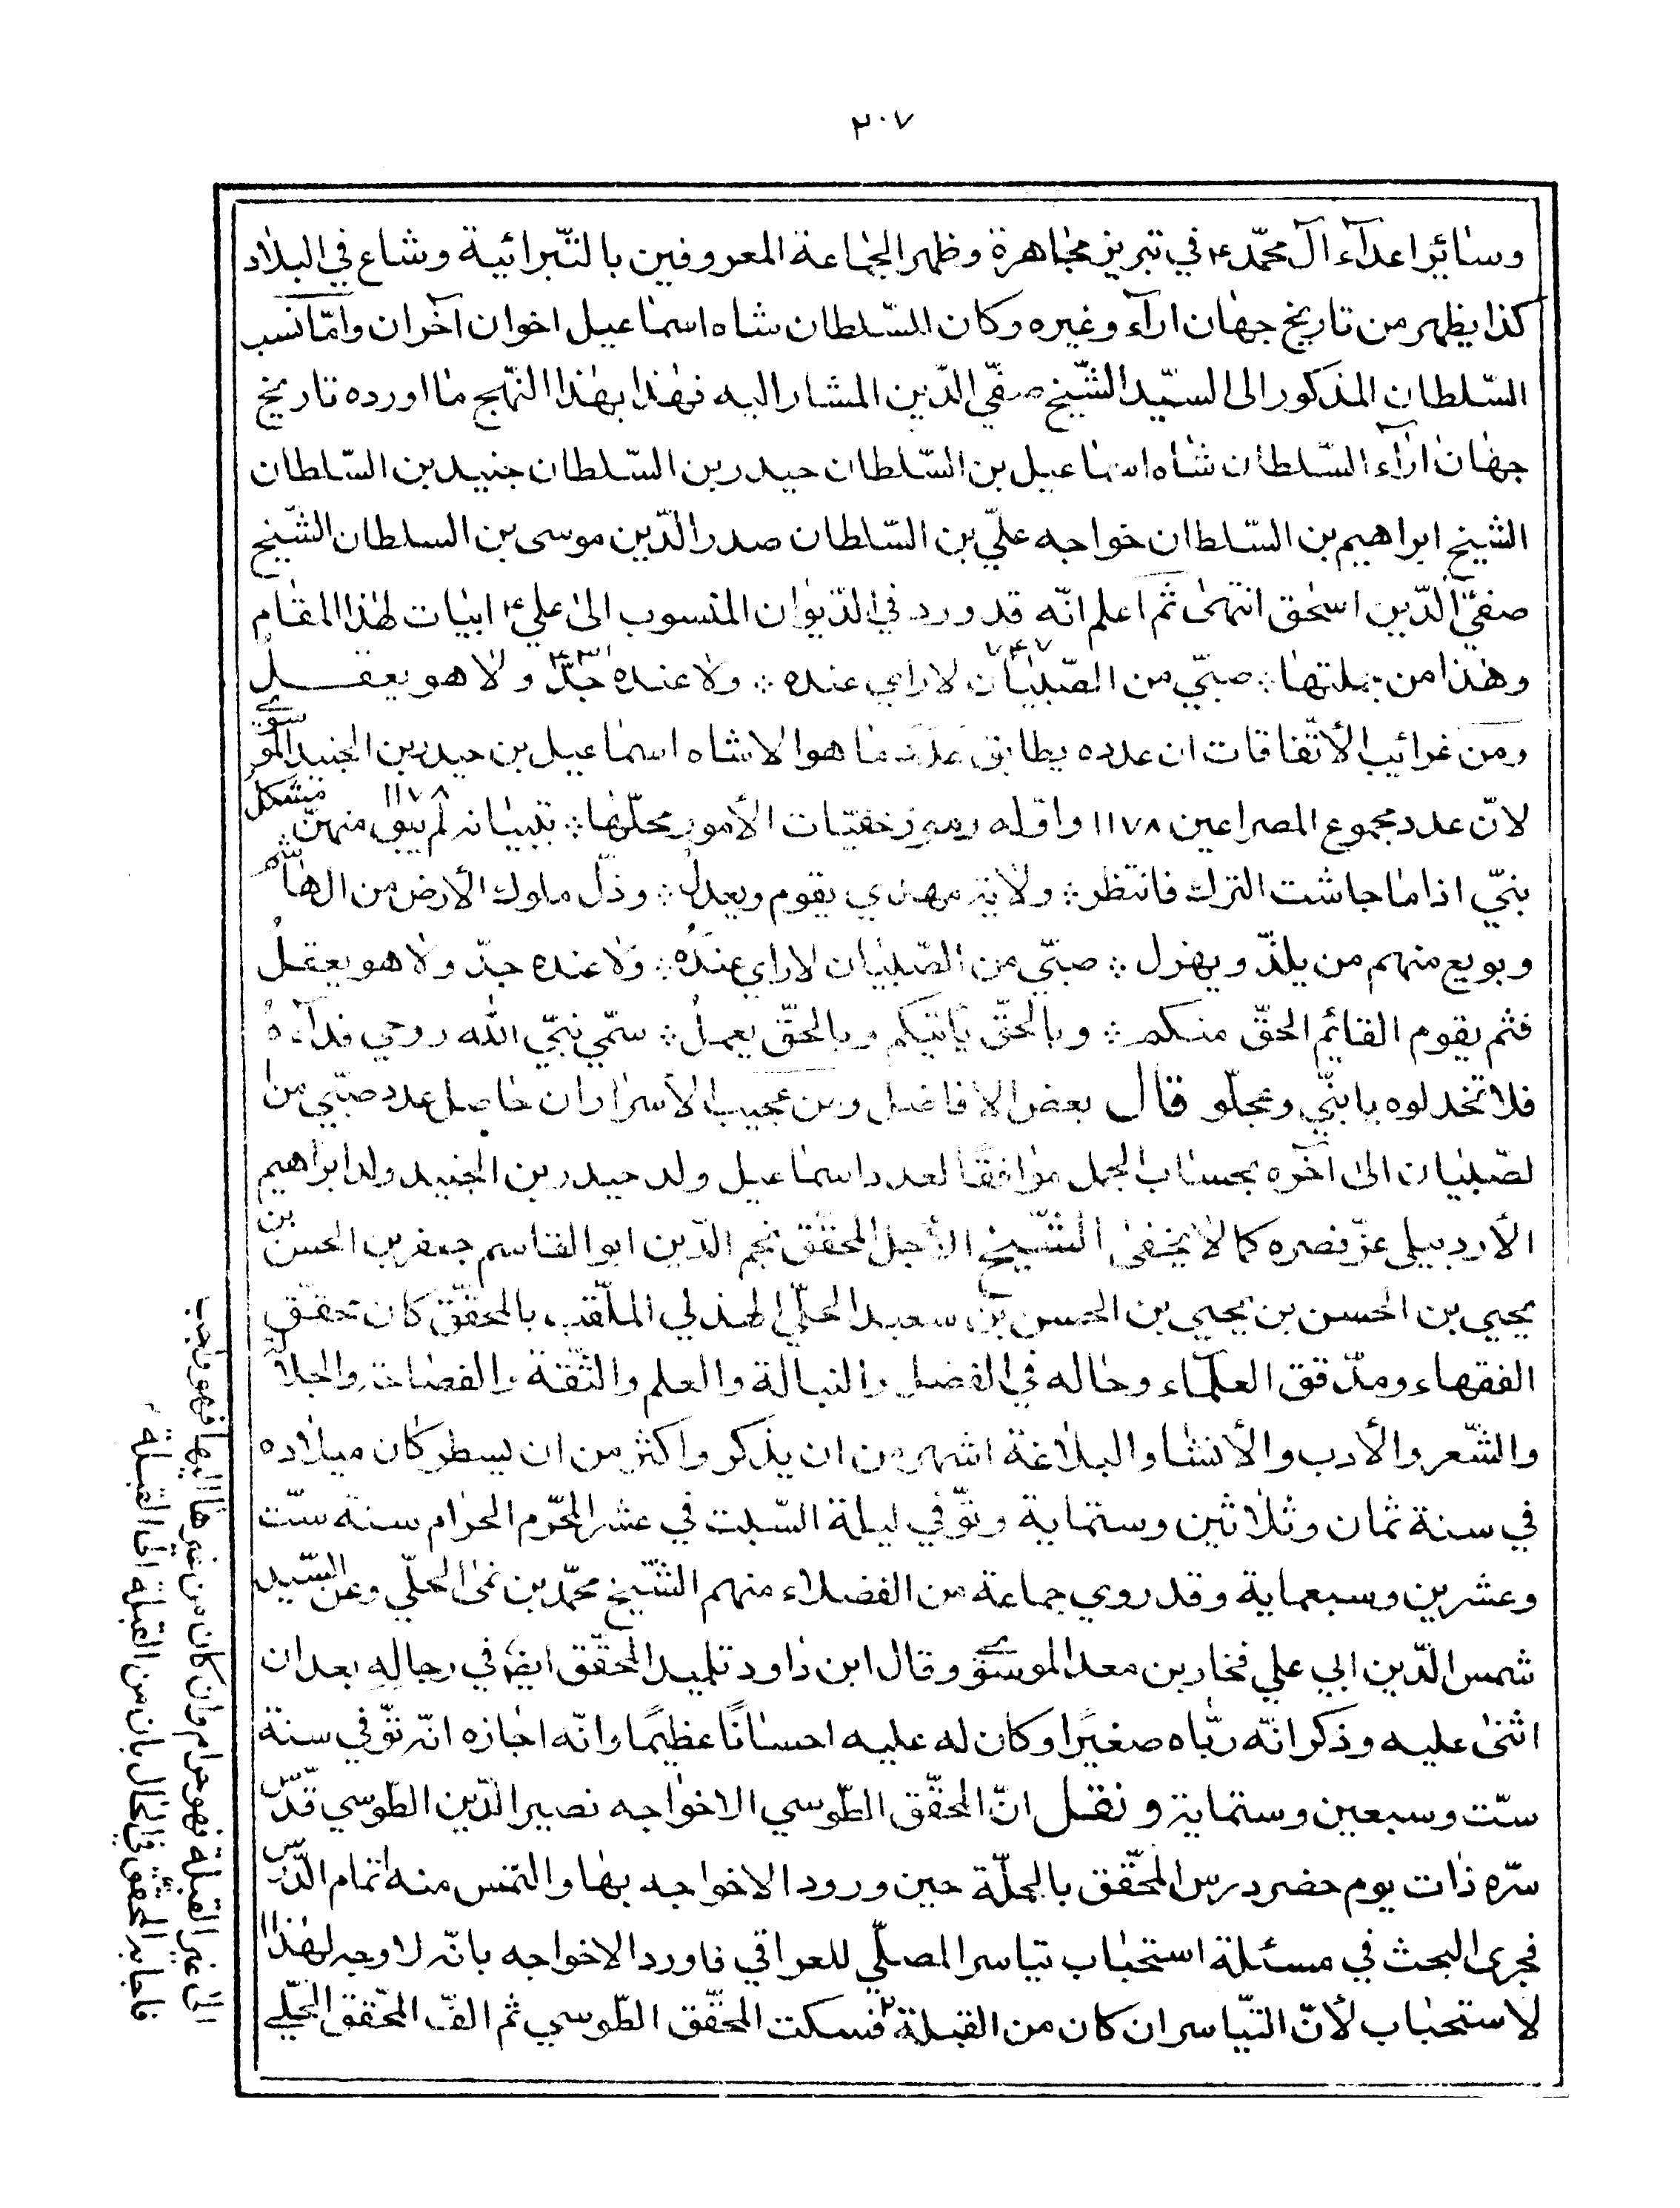 ٣٠٧
وسائر اعدآء آل محمّد ع في تبريز مجاهرة وظهر الجماعة المعروفين بالتّبرائية وشاع في البلاد
كذا يظهر من تاريخ جهان ارآء وغيره وكان للسّلطان شاه اسماعيل اخوان آخران وامّا نسب
السّلطان المذكور الى السيّد الشّيخ صفّي الدّين المشار اليه فهذا بهذا النّهج ما اورده تاريخ
جهان ارآء السّلطان شاه اسماعيل بن السّلطان حيدر بن السّلطان جنيد بن السّلطان
الشيخ ابراهيم بن السّلطان خواجه علّي بن السّلطان صدر الدّين موسى بن السلطان الشّيخ
صفيّ الدّين اسحق انتهى ثمّ اعلم انّه قد ورد في الدّيوان المنسوب الى علي ع ابيات لهذا المقام
وهذا من جملتها ؞ صبّي من الصّبيان لا راي عنده ؞ ولا عنده جدّ ولا هو يعقل
ومن غرائب الأتّفاقات ان عدده يطابق عدد ما هو الا شاه اسماعيل بن حيدر بن الجنيد الموسوي
لانّ عدد مجموع المصراعين ١١٧٨ واوّله رموز خفيّات الأمور محلّها ؞ تبيانه لم يبق منهنّ مشكل
بنيّ اذا ما جاشت الترك فانتظر ؞ ولاية مهدي يقوم ويعدل ؞ وذلّ ملوك الأرض من ال هاشم
وبويع منهم من يلذّ ويهزل ؞ صبّي من الصّبيان لا راي عنده ؞ ولا عنده جدّ ولا هو يعقل
فثم يقوم القائم الحقّ منكم ؞ وبالحقّ يأتيكم وبالحقّ يعمل ؞ سمّي نبّي الله روحي فدآءه
فلا تخذلوه يا بنّي وعجلّو قال بعض الافاضل ومن عجيب الأسرار ان حاصل عدد صبّي من
لصّبيان الى آخره بحساب الجمل موافقًا لعدد اسماعيل ولد حيدر بن الجنيد ولد ابراهيم
الأردبيلي عزّ نصره كما لا يخفى الشّيخ الأجل المحقّق نجم الدّين ابو القاسم جعفر بن الحسن بن
يحيي بن الحسن بن يحيي بن الحسن بن سعيد الحلّي الهذلي الملّقب بالمحقّق كان محقّق
الفقهاء ومدّقق العلماء وحاله في الفضل والنبالة والعلم والثّقة والفصاحة والجلالة
والشّعر والأدب والأنشا والبلاغة اشهر من ان يذكر واكثر من ان يسطر كان ميلاده
في سنة ثمان وثلاثين وستماية وتوّفي ليلة السّبت في عشر المحّرم الحرام سنة ستّ
وعشرين وسبعماية وقد روي جماعة من الفضلاء منهم الشّيخ محمّد بن نمى الحلّي وعن السّيد
شمس الدّين ابي علي فخار بن معد الموسوي وقال ابن داود تلميد المحقّق ايضا في رجاله بعد ان
اثنى عليه وذكر انّه ربّاه صغيرًا وكان له عليه احسانًا عظيمًا وانّه اجازه انّه توّفي سنة
ستّ وسبعين وستماية ونقل انّ المحقّق الطّوسي الاخواجه نصير الدّين الطّوسي قدّس
سرّه ذات يوم حضر درس المحّقق بالحلّة حين ورود الاخواجه بها والتمس منه اتمام الدّرس
فجرى البحث في مسئلة استحباب تياسر المصلّي للعراقي فاورد الاخواجه بانّه لا وجه لهذا
لاستحباب لأنّ التّياسر ان كان من القبلة فسكت المحقّق الطّوسي ثم الفّ المحّقق الحلّي
الى غير القبلة فهو حرام وان كان من غيرها اليها فهو واجب
فاجابه المحقق في الحال بان من القبلة الى القبلة